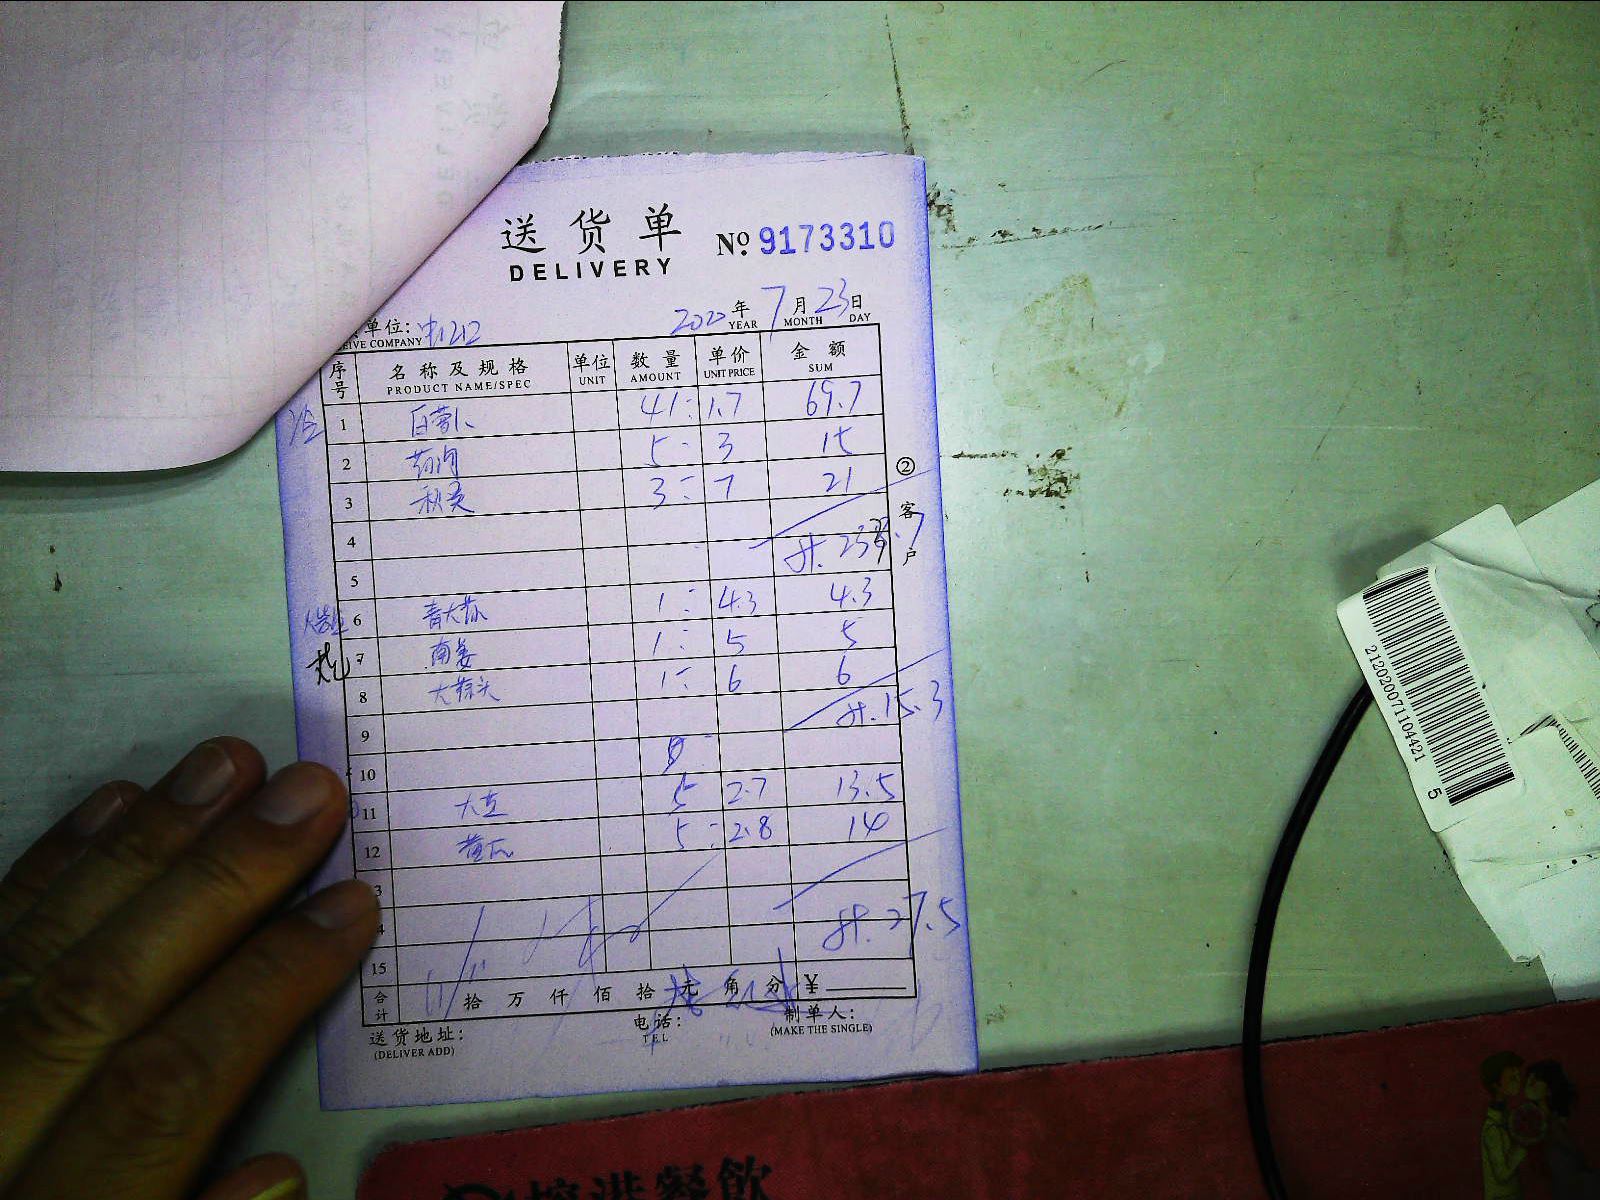 送货单
DELIVERY
№ 9173310
单位:
EIVE COMPANY
2020年 7月 23日
YEAR MONTH DAY
序号 名称及规格 单位 数量 单价 金额
PRODUCT NAME/SPEC UNIT AMOUNT UNIT PRICE SUM
1 白萝卜 41 : 1.7 69.7
2 5 : 3 15
3 秋葵 3 : 7 21
4
5
6 青大 1 : 4.3 4.3
7 南姜 1 : 5 5
8 大蒜头 1 : 6 6
9 计.15.3
10
11 大豆 5 2.7 13.5
12 黄瓜 5 : 2.8 14
3
4 计.27.5
15
合计 拾 万 仟 佰 拾 元 角 分 ¥
送货地址:
(DELIVER ADD)
电话:
TEL
制单人:
(MAKE THE SINGLE)
② 客户
212020071104421
5
餐飲